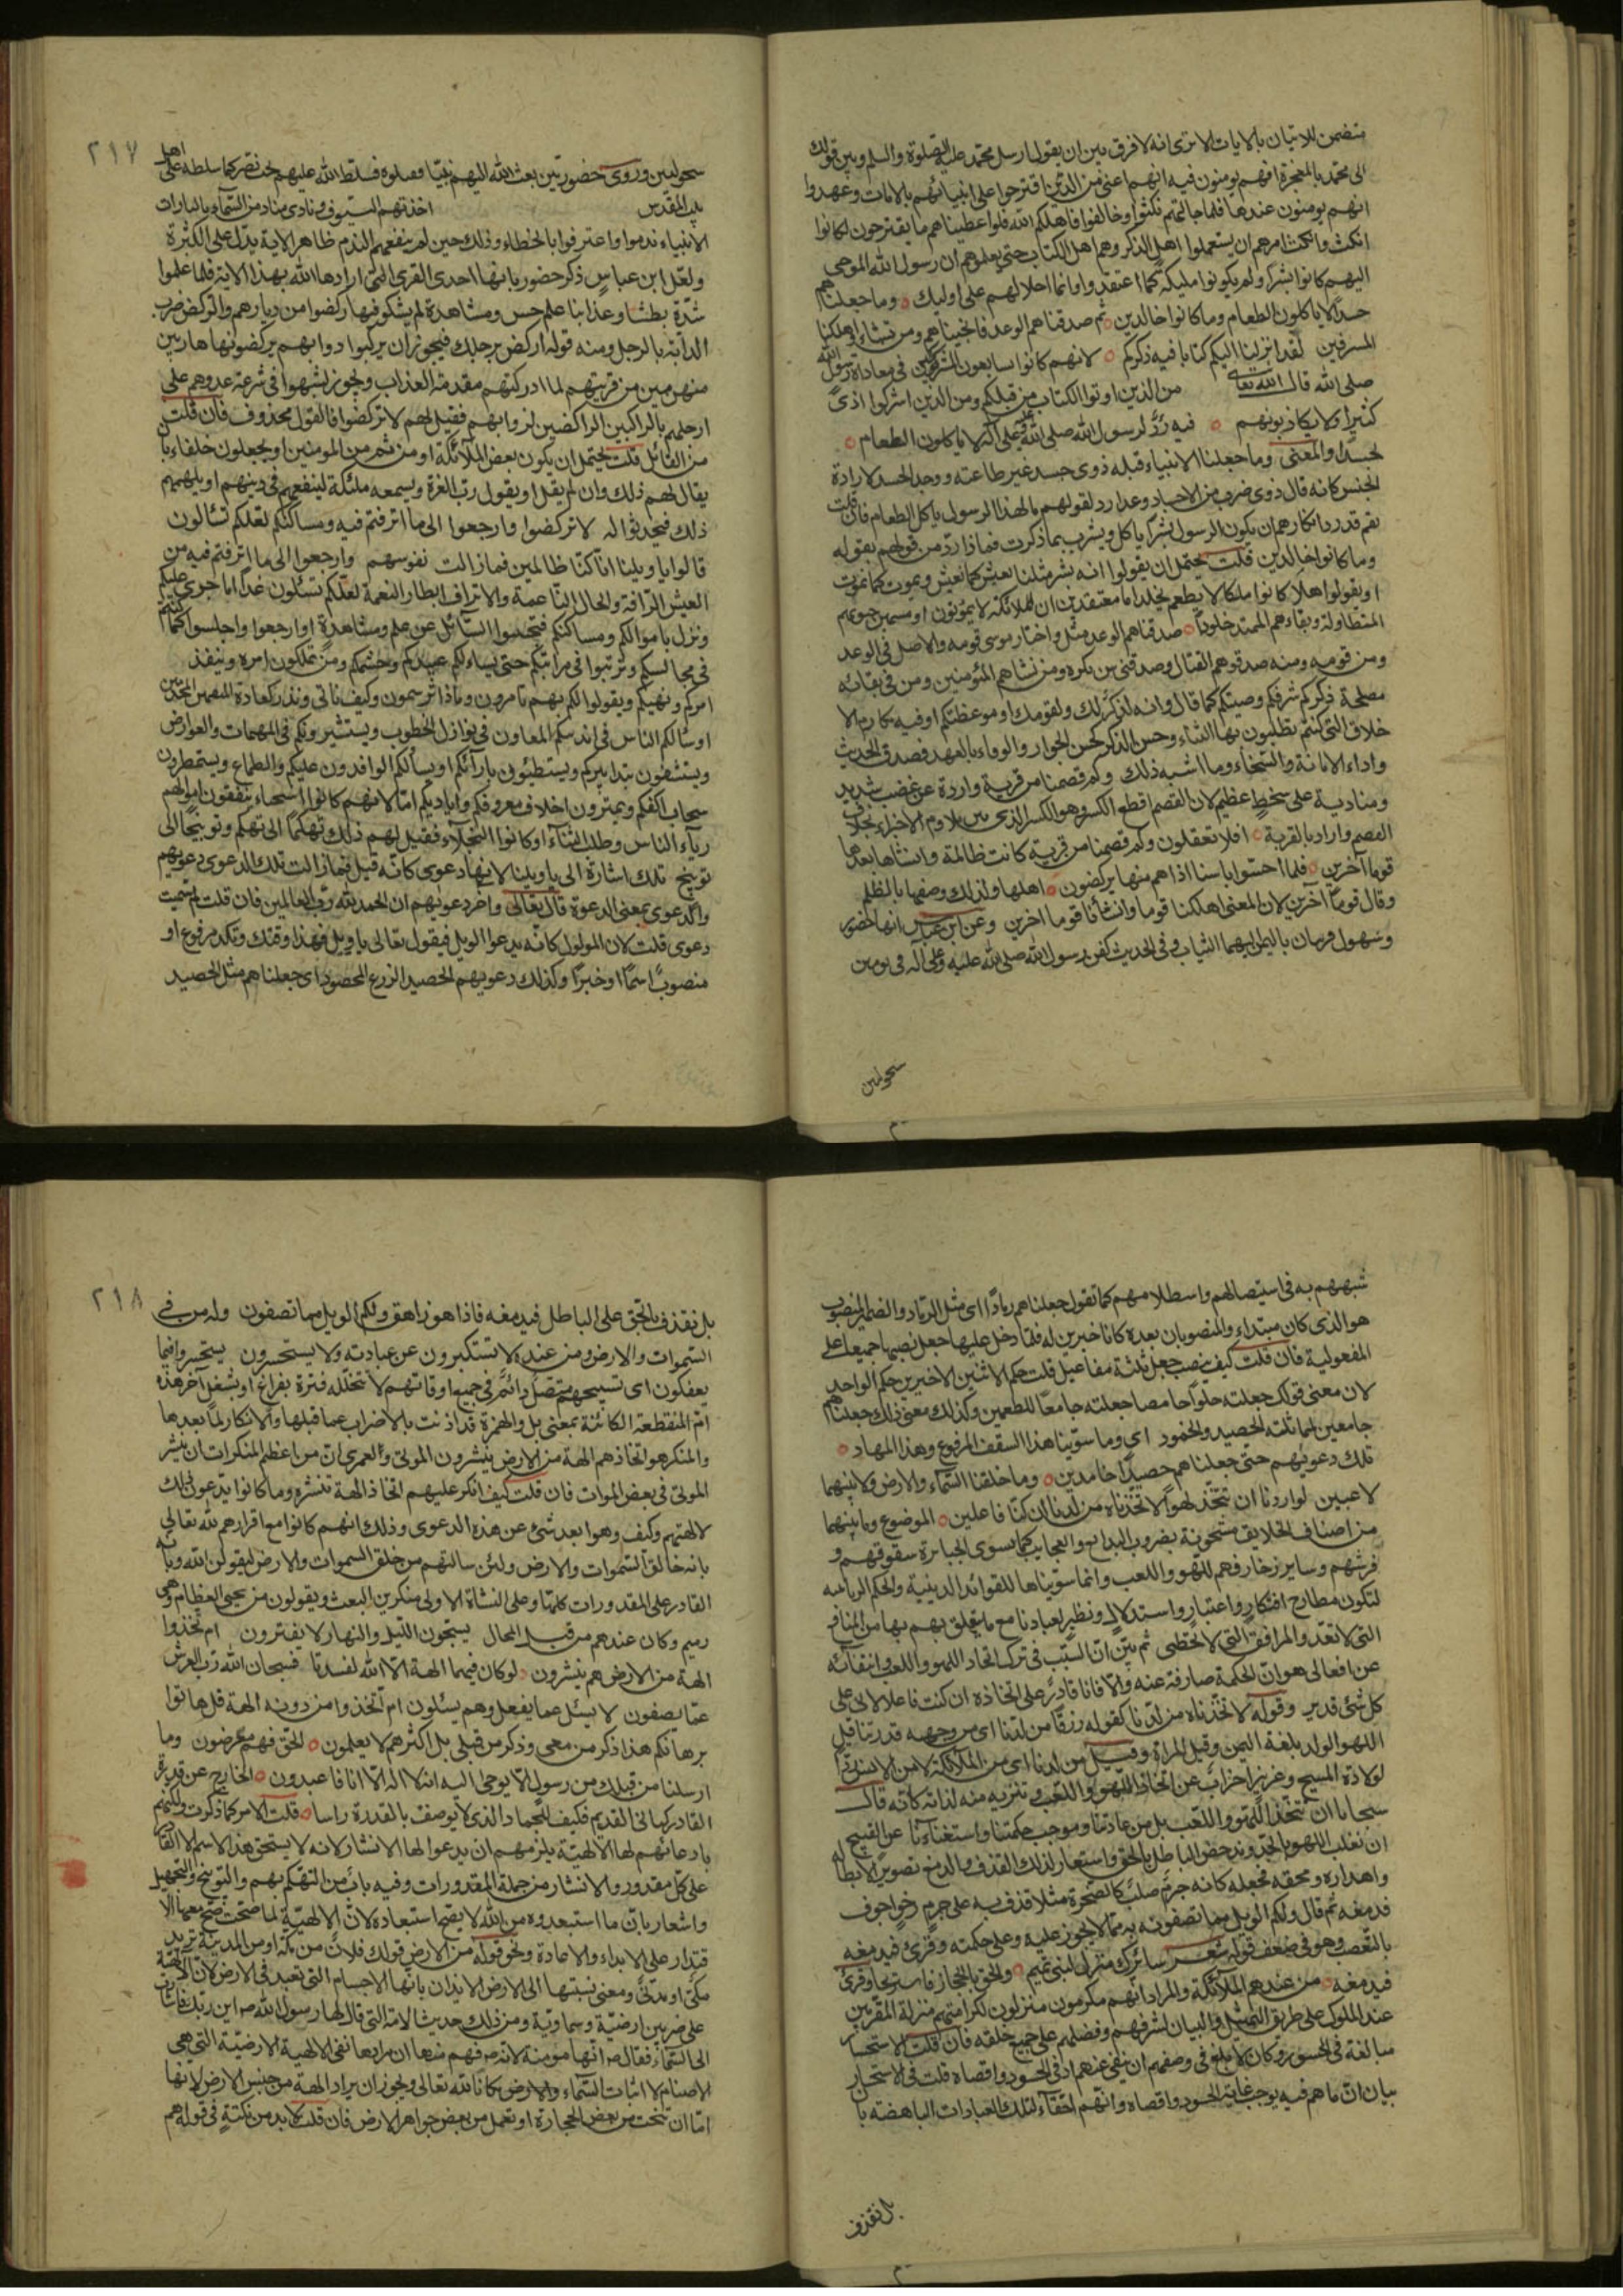 متضمن للاتيان بالايات الا ترى انه لا فرق بين ان يقول ارسل محمد عليه الصلوة والسلم وبين قولك
الى محمد بالمعجزة افهم يومنون فيه انهم اعتى من الذين اقترحوا على انبيائهم بالايات وعهدوا
انهم يومنون عندها فلما جائتهم نكثوا وخالفوا فاهلكهم الله فلو اعطيناهم ما يقترحون لكانوا
انكث وانكث امرهم ان يستعملوا اهل الذكر وهم اهل الكتاب حتى يعلموهم ان رسول الله الموحى
اليهم كانوا بشرا ولم يكونوا مليكة كما اعتقدوا وانما احلالهم على اوليك وما جعلناهم
جسدا لا ياكلون الطعام وما كانوا خالدين ثم صدقناهم الوعد فانجيناهم ومن نشاء واهلكنا
المسرفين لقد انزلنا اليكم كتابا فيه ذكركم لانهم كانوا سابعون المشركين في معاداة رسول الله
صلى الله قال الله تعالى من الذين اوتوا الكتاب من قبلكم ومن الذين اشركوا اذى
كثيرا فلا يكاذبونهم فيه رد لرسول الله صلى الله وعلى اله لا ياكلون الطعام
لجسدا والمعنى وما جعلنا الانبياء قبله ذوى جسد غير طاعته ووحد الجسد لارادة
الجنس كانه قال ذوى ضرب من الاجساد وعدا رد لقولهم ما لهذا الرسول ياكل الطعام فان قلت
نعم قد رد انكارهم ان يكون الرسول بشرا ياكل ويشرب بما ذكرت فماذا رد من قولهم بقوله
وما كانوا خالدين قلت يحتمل ان يقولوا انه بشر مثلنا يعيش كما نعيش ويموت كما نموت
او يقولوا هلا كانوا ملكا لا يطعم يخلد اما معتقدين ان الملائكة لا يموتون او مسمين حيوتهم
المتطاولة وبقاءهم الممتد خلودا صدقناهم الوعد مثل واختار موسى قومه والاصل في الوعد
ومن قومه ومنه صدقوهم القتال وصدقنى سن بكره ومن نشاهم المؤمنين ومن في بقائه
مصلحة ذكركم شرفكم وصيتكم كما قال وانه لذكر لك ولقومك او موعظتكم او فيه مكارم الا
خلاق التى كنتم تطلبون بها الثناء وحسن الذكر كحسن الجوار والوفاء بالعهد فصدق الحديث
واداء الامانة والسخاء وما اشبه ذلك وكم قصمنا من قرية واردة عن غضب شديد
ومنادية على سخط عظيم لان القصم افظع الكسر وهو الكسر الذى يبين تلاوم الاجزاء بخلاف
الفصم واراد بالقرية افلا تعقلون وكم قصمنا من قرية كانت ظالمة وانشانا بعدها
قوما آخرين فلما احسوا باسنا اذا هم منها يركضون اهلها ولذلك وصفها بالظلم
وقال قوما آخرين لان المعنى اهلكنا قوما وانشأنا قوما اخرين وعن ابن عباس انها حضور
وسهول قريتان باليمن اليهما الثياب وفي الحديث كفن رسول الله صلى الله عليه وعلى آله فى ثوبين
سحولين
٢١٧
سحوليين وروى حضوريين بعث الله اليهم نبيا فقتلوه فسلط الله عليهم بخت نصر كما سلطه على اهل
بيت المقدس اخذتهم السيوف ونادى مناد من السماء يالثارات
الانبياء ندموا واعترفوا بالخطاء وذلك حين لم ينفعهم الندم ظاهر الاية يدل على الكثرة
ولعل ابن عباس ذكر حضور بانها احدى القرى التى ارادها الله بهذا الاية فلما علموا
شدة بطشا وعذابنا علم حس ومشاهدة لم يشكوا فيها ركضوا من ديارهم والركض ضرب
الدابة بالرجل ومنه قوله اركض برجلك فيجوز ان يركبوا دوابهم يركضونها هاربين
منهزمين من قريتهم لما ادركتهم مقدمة العذاب ويجوز شبهوا في سرعة عدوهم على
ارجلهم بالراكبين الراكضين لدوابهم فقيل لهم لا تركضوا فالقول محذوف فان قلت
من القائل قلت يحتمل ان يكون بعض الملائكة او من ثم من المومنين او يجعلون خلقاء بان
يقال لهم ذلك وان لم يقل او يقول رب العزة ويسمعه ملئكة لينفعهم في دينهم او يلهمهم
ذلك فيحدثوا له لا تركضوا وارجعوا الى ما اترفتم فيه ومساكنكم لعلكم تسألون
قالوا يا ويلنا انا كنا ظالمين فما زالت نفوسهم وارجعوا الى ما اترفتم فيه من
العيش الرافة والحال الناعمة والاتراف ابطار النعمة لعلكم تسئلون غدا اما جرى عليكم
ونزل باموالكم ومساكنكم فتجيبوا السائل عن علم ومشاهدة او ارجعوا واجلسوا كما كنتم
في مجالسكم وترتبوا في مراتبكم حتى يساءلكم عبيدكم وحشمكم ومن تملكون امره وينفذ
امركم ونهيكم ويقولوا لكم بم تامرون وماذا ترسمون وكيف ناتى ونذر كعادة المنعمين المخدمين
او سألكم الناس في انديتكم المعاون في نوازل الخطوب ويستشيرونكم في المهمات والعوارض
ويستشفون بتدابيركم ويستضيئون بآرائكم او يسألكم الوافدون عليكم والطماع ويستمطرون
سحاب اكفكم ويمترون اخلاف معروفكم واياديكم اما لانهم كانوا اسخياء ينفقون اموالهم
رياء الناس وطلب الثناء او كانوا البخلاء فقيل لهم ذلك تهكما الى تهكم وتوبيخا الى
توبيخ تلك اشارة الى يا ويلنا لانها دعوى كانه قيل فما زالت تلك الدعوى دعويهم
والدعوى بمعنى الدعوة قال تعالى واخر دعويهم ان الحمد لله رب العالمين فان قلت لم سميت
دعوى قلت لان المولول كانه يدعوا الويل فيقول تعالى يا ويل فهذا وقتك وتلك مرفوع او
منصوب اسما او خبرا وكذلك دعويهم الحصيد الزرع المحصود اى جعلناهم مثل الحصيد
شبههم به في استيصالهم واصطلامهم كما تقول جعلناهم رمادا اى مثل الرماد والضمير المنصوب
هو الذى كان مبتداء والمنصوبان بعده كانا خبرين له فلما دخل عليها جعل نصبها جميعا على
المفعولية فان قلت كيف ينصب جعل ثلثة مفاعيل قلت حكم الاثنين الاخيرين حكم الواحد
لان معنى قولك جعلته حلوا حامضا جعلته جامعا للطعمين وكذلك معنى ذلك جعلناهم
جامعين لمماثلة الحصيد والخمود اى وما سوينا هذا السقف المرفوع وهذا المهاد
تلك دعويهم حتى جعلناهم حصيدا خامدين وما خلقنا السماء والارض وما بينهما
لاعبين لو اردنا ان نتخذ لهوا لاتخذناه من لدنا ان كنا فاعلين الموضوع وما بينهما
من اصناف الخلايق مشحونة بضروب البدايع والعجايب كما يسوى الجبابرة سقوفهم و
فرشهم وساير زخارفهم للهو واللعب وانما سويناها للفوائد الدينية والحكم الربانية
لتكون مطارح افتكار واعتبار واستدلال ونظير لعبادنا مع ما يتعلق بهم بها من المنافع
التى لا تعد والمرافق التى لا تحصى ثم بين ان السبب في ترك اتخاذ اللهو واللعب وانتفائه
عن افعالى هو ان الحكمة صارفة عنه والا فانا قادر على اتخاذه ان كنت فاعلا لانى على
كل شئ قدير وقوله لاتخذناه من لدنا كقوله رزقا من لدنا اى من وجهه قدرتنا قيل
اللهو الولد بلغة اليمن وقيل المراة وقيل من لدنا اى من الملائكة لا من الانس ردا
لولادة المسيح وعزير اضراب عن اتخاذ اللهو واللعب وتنزيه منه لذاته كانه قال
سبحانا ان نتخذ اللهو واللعب بل من عادتنا وموجب حكمتنا واستغناءنا عن القبيح
ان نغلب اللهو بالجد وندحض الباطل بالحق واستعار لذلك القذف والدمغ تصويرا لابطاله
واهداره ومحقه فجعله كانه جرم صلب كالصخرة مثلا قذف به على جرم رخو اجوف
فدمغه ثم قال ولكم الويل مما تصفونه به مما لا يجوز عليه وعلى حكمته وقرئ فيدمغه
بالنصب وهو في ضعف قوله شعر ساترك منزلى لبنى تميم والحق بالحجاز فاستريحا وقرئ
فيدمغه من عندهم الملائكة والمراد انهم مكرمون منزلون لكرامتهم منزلة المقربين
عند الملوك على طريق التمثيل والبيان لشرفهم وفضلهم على جميع خلقه فان قلت الاستحسار
مبالغة في الحسور وكان الابلغ في وصفهم ان ينفى عنهم ادنى الحسور واقصاه قلت في الاستحسار
بيان ان ما هم فيه يوجب غاية الحسور واقصاه وانهم احقاء لتلك العبادات الباهضة با
بل نقذف
٢١٨
بل نقذف بالحق على الباطل فيدمغه فاذا هو زاهق ولكم الويل مما تصفون وله من في
السموات والارض ومن عنده لا يستكبرون عن عبادته ولا يستحسرون يستحسروا فيما
يعفكون اى تسبيحهم متصل دائم في جميع اوقاتهم لا تتخلله فترة بفراغ او بشغل آخر هذه
ام المنقطعة الكائنة بمعنى بل والهمزة قد اذنت بالاضراب عما قبلها والانكار لما بعدها
والمنكر هو اتخاذهم الهة من الارض ينشرون الموتى ولعمرى ان من اعظم المنكرات ان ينشر
الموتى في بعض الموات فان قلت كيف انكر عليهم اتخاذ الهة تنشر وما كانوا يدعون ذلك
لالهتهم وكيف وهو ابعد شئ عن هذه الدعوى وذلك انهم كانوا مع اقرارهم لله تعالى
بانه خالق السموات والارض ولئن سالتهم من خلق السموات والارض ليقولن الله وبانه
القادر على المقدورات كلها وعلى النشاة الاولى منكرين البعث ويقولون من يحيى العظام وهى
رميم وكان عندهم من قبيل المحال يسبحون الليل والنهار لا يفترون ام اتخذوا
الهة من الارض هم ينشرون لو كان فيهما الهة الا الله لفسدتا فسبحان الله رب العرش
عما يصفون لا يسئل عما يفعل وهم يسئلون ام اتخذوا من دونه الهة قل هاتوا
برهانكم هذا ذكر من معى وذكر من قبلى بل اكثرهم لا يعلمون الحق فهم معرضون وما
ارسلنا من قبلك من رسول الا يوحى اليه انه لا اله الا انا فاعبدون الخارج عن قدرة
القادر كهاتى القديم فكيف للجماد الذى لا يوصف بالقدرة راسا قلت الامر كما ذكرت ولكنهم
بادعائهم لها الالهية يلزمهم ان يدعوا لها الانشار لانه لا يستحق هذا الاسم الا القادر
على كل مقدور والانشار من جملة المقدورات وفيه باب من التهكم بهم والتوبيخ والتجهيل
واشعار بان ما استبعدوه من الله لا يصح استبعاده لان الالهية لما صحت صح معها الا
قتدار على الابداء والاعادة ونحو قوله من الارض قولك فلان من مكة او من المدينة تريد
مكى او مدنى ومعنى نسبتها الى الارض الايذان بانها الاجسام التى تعبد في الارض لان الالهة
على ضربين ارضية وسماوية ومن ذلك حديث الامة التى قال لها رسول الله صم اين ربك فاشارت
الى السماء فقال صم انها مومنة لانه صم فهم منها ان مرادها نفى الالهية الارضية التى هى
الاصنام لا اثبات السماء والارض مكانا لله تعالى ويجوز ان يراد الهة من جنس الارض لانها
اما ان تنحت من بعض الحجارة او تعمل من بعض جواهر الارض فان قلت لا بد من نكتة في قوله هم